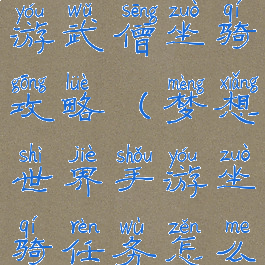 yóu wǔ sēng zuò qí
游武僧坐骑
gōng lüè mèng xiǎng
攻略（梦想
shì jiè shǒu yóu zuò
世界手游坐
qí rèn wù zěn me
骑任务怎么